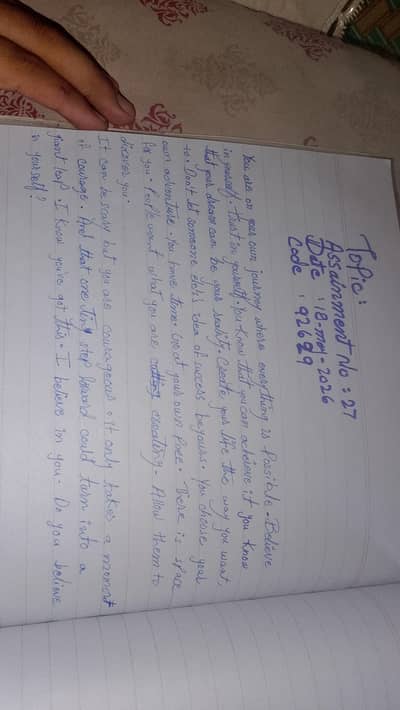 Topic:
Assainment No : 27
Date : 18-may-2026
Code : 92629
You are on your own journey where everything is Possible. Believe
in yourself. Trust in yourself. You know that you can achieve it you know
that your dream can be your reality. Create your life the way you want
to. Don't let someone else's idea of success be yours. You choose your
own adventure. You have time. Go at your own Pace. There is space
for you. People want what you are creating. Allow them to
you.
It can be scary but you are courageous. It only takes a moment
of courage. And that one tiny step forward could turn into a
giant leap. I know you've got this. I believe in you. Do you believe
in yourself?